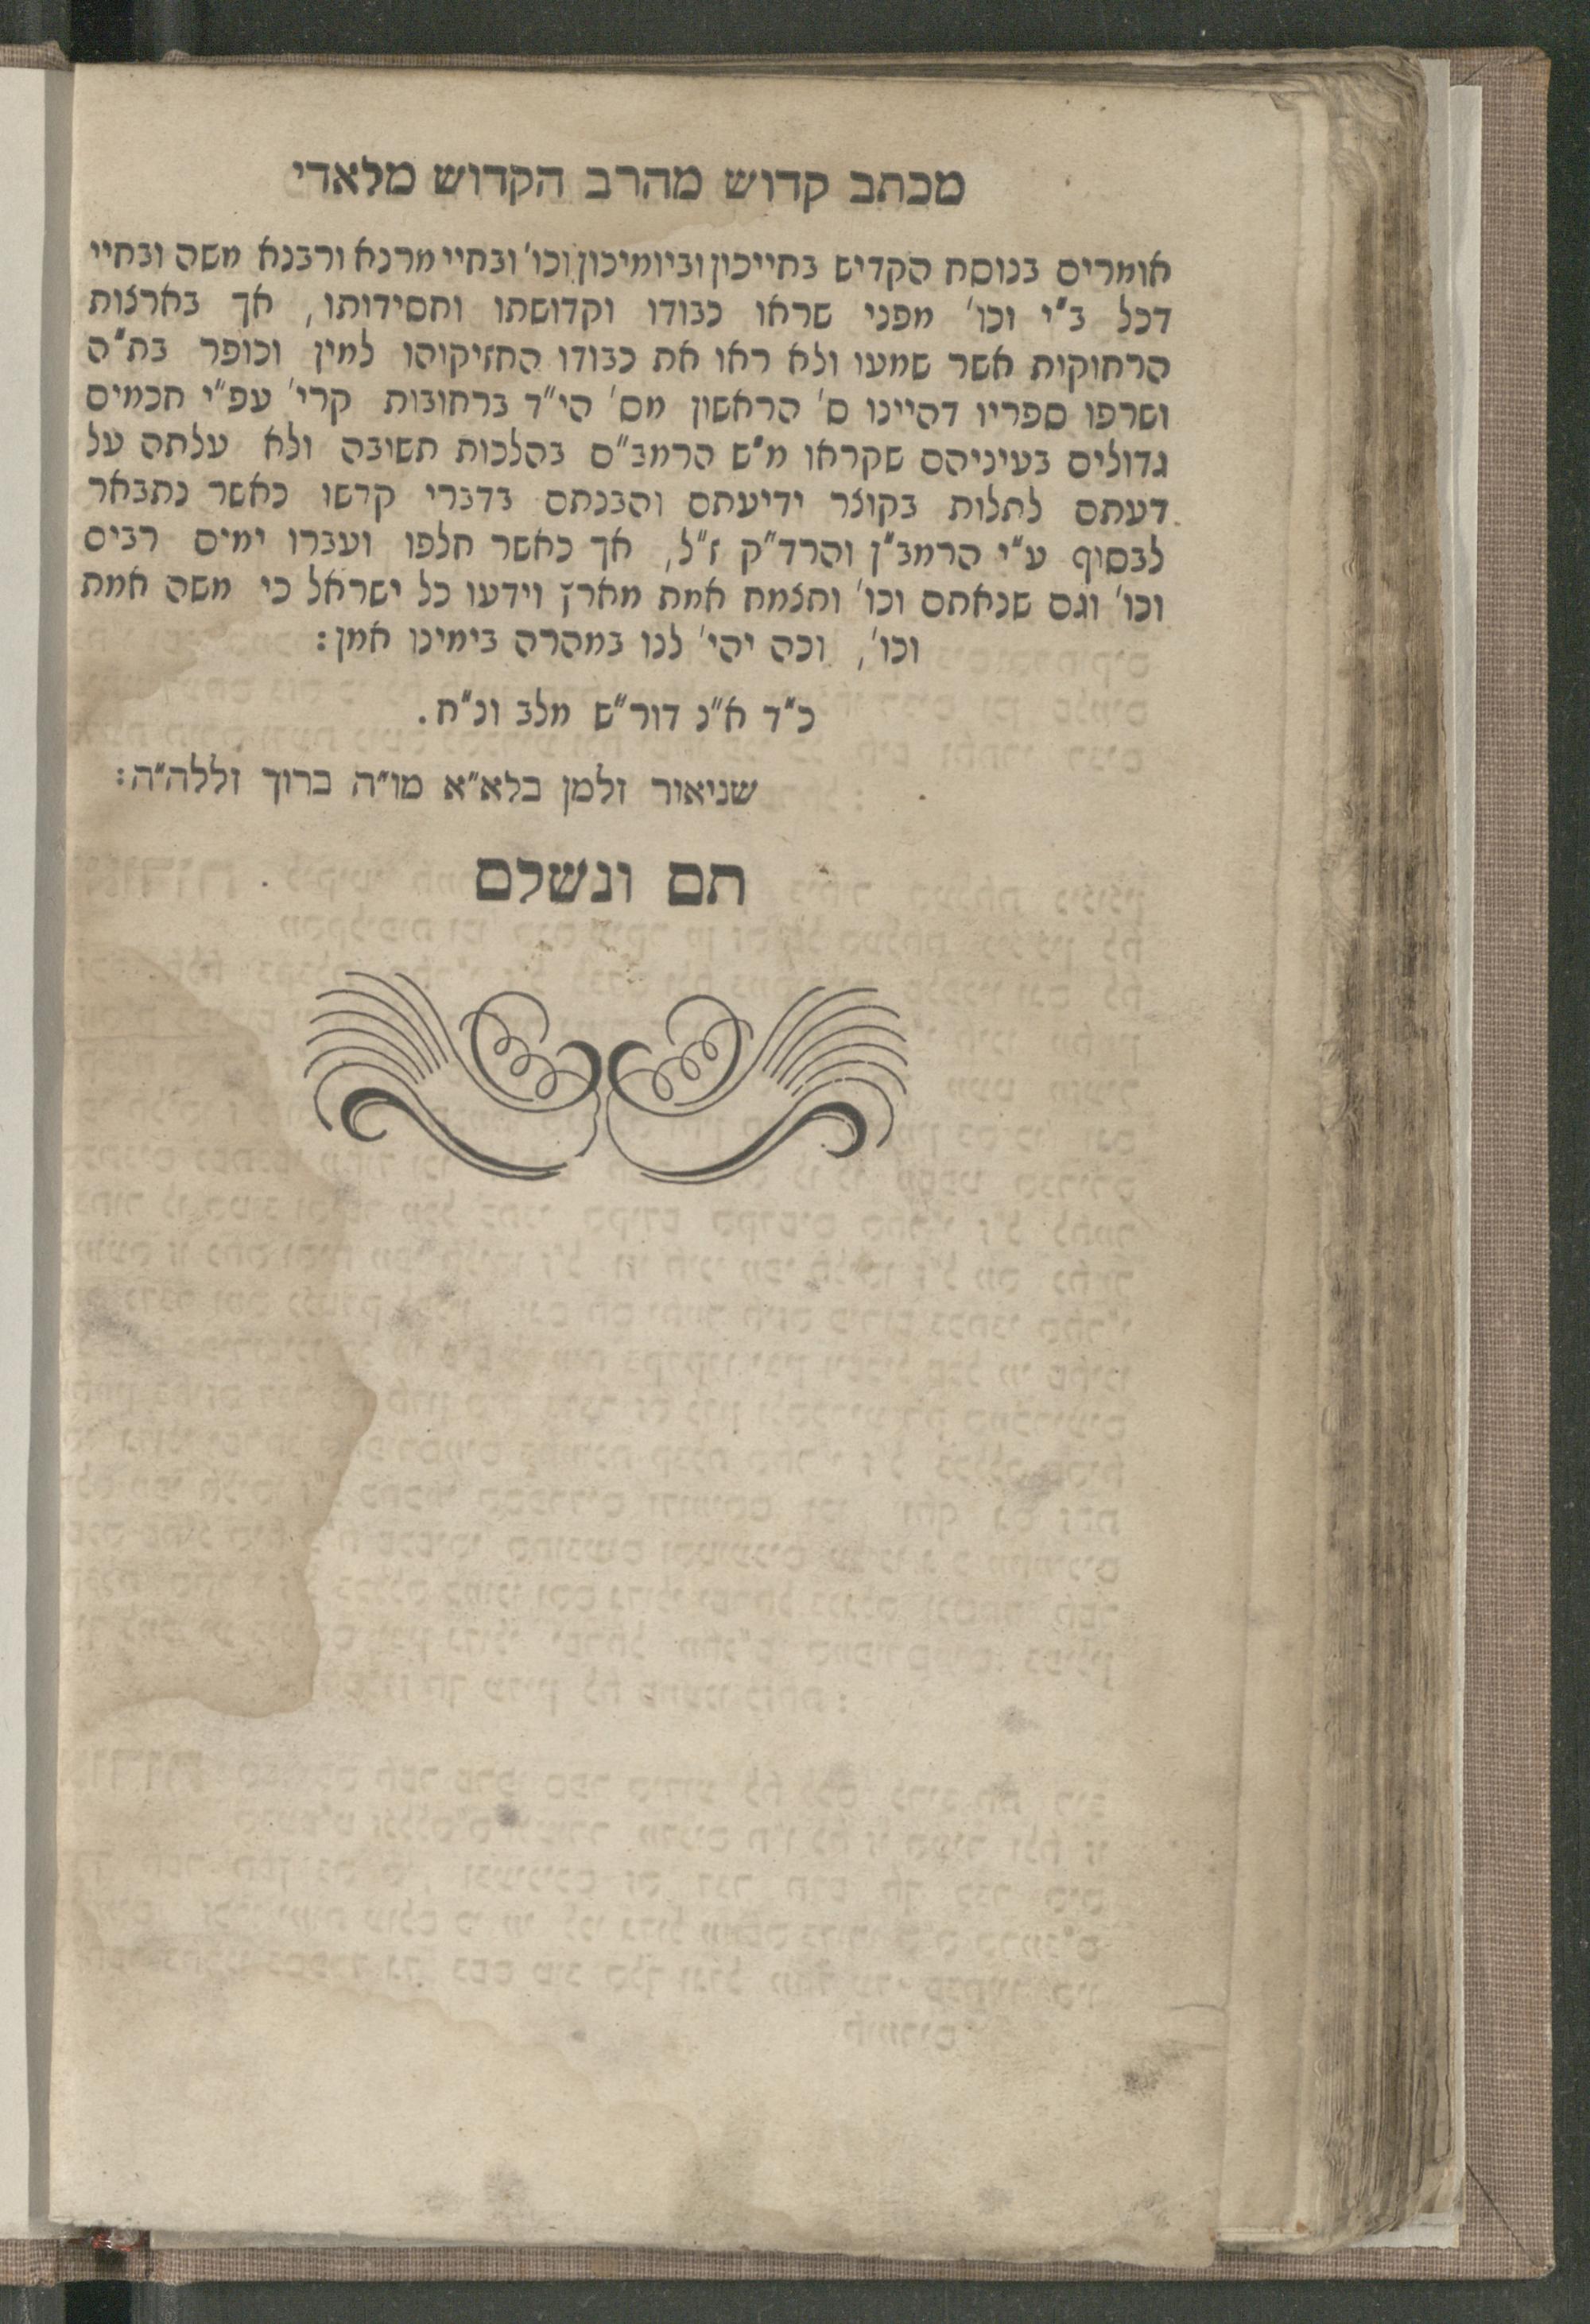 מכתב קדוש מהרב הקדוש מלאדי
אומרים בנוסח הקדיש בחייכון וביומיכון וכו' ובחיי מרנא ורבנא משה ובחיי
דכל ב"י וכו' מפני שראו כבודו וקדושתו וחסידותו, אך בארצות
הרחוקות אשר שמעו ולא ראו את כבודו החזיקוהו למין וכופר בת"ה
ושרפו ספריו דהיינו ס' הראשון מס' הי"ד ברחובות קרי' עפ"י חכמים
גדולים בעיניהם שקראו מ"ש הרמב"ם בהלכות תשובה ולא עלתה על
דעתם לתלות בקוצר ידיעתם והבנתם בדברי קדשו כאשר נתבאר
לבסוף ע"י הרמב"ן והרד"ק ז"ל, אך כאשר חלפו ועברו ימים רבים
וכו' וגם שנאתם וכו' ותצמח אמת מארץ וידעו כל ישראל כי משה אמת
וכו', וכה יהי' לנו במהרה בימינו אמן:
כ"ד א"נ דור"ש מלב ונ"ח.
שניאור זלמן בלא"א מו"ה ברוך זללה"ה:
תם ונשלם